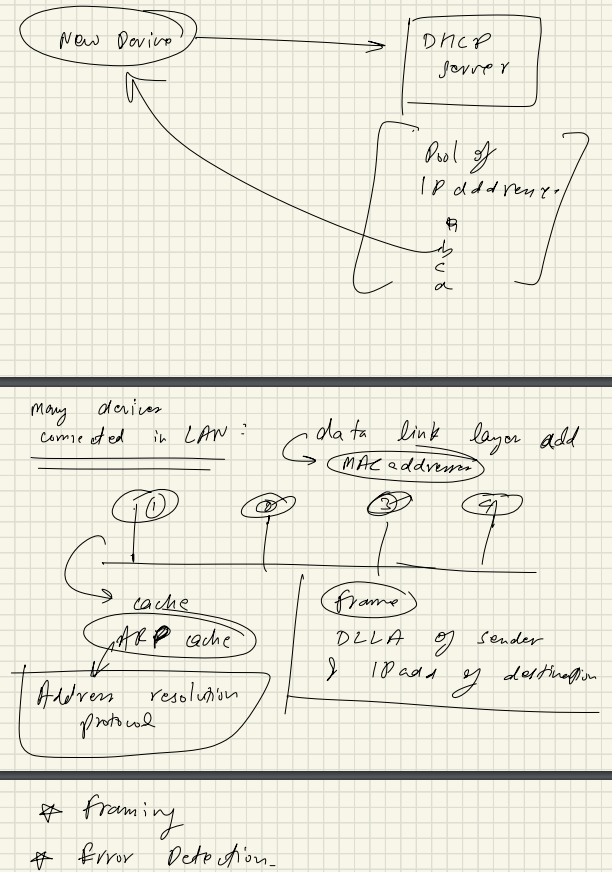 New Device
DHCP
server
Pool of
IP adddresses.
a
b
c
d
many devices
connected in LAN :
data link layer add
MAC addresses
1
2
3
4
cache
ARP cache
Address resolution
protocol
frame
DLLA of sender
& IP add of destination
☆ Framing
☆ Error Detection_